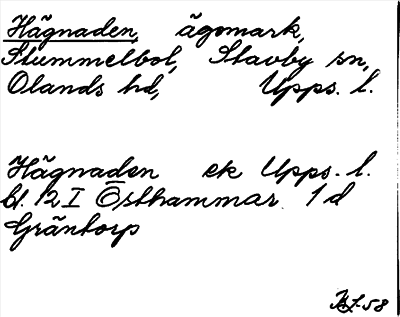 Hägnaden, ägomark,
Stummelbol, Stavby sn,
Olands hd, Upps. l.
Hägnaden ek Upps. l.
bl. 12 I Östhammar 1 d
Gräntorp